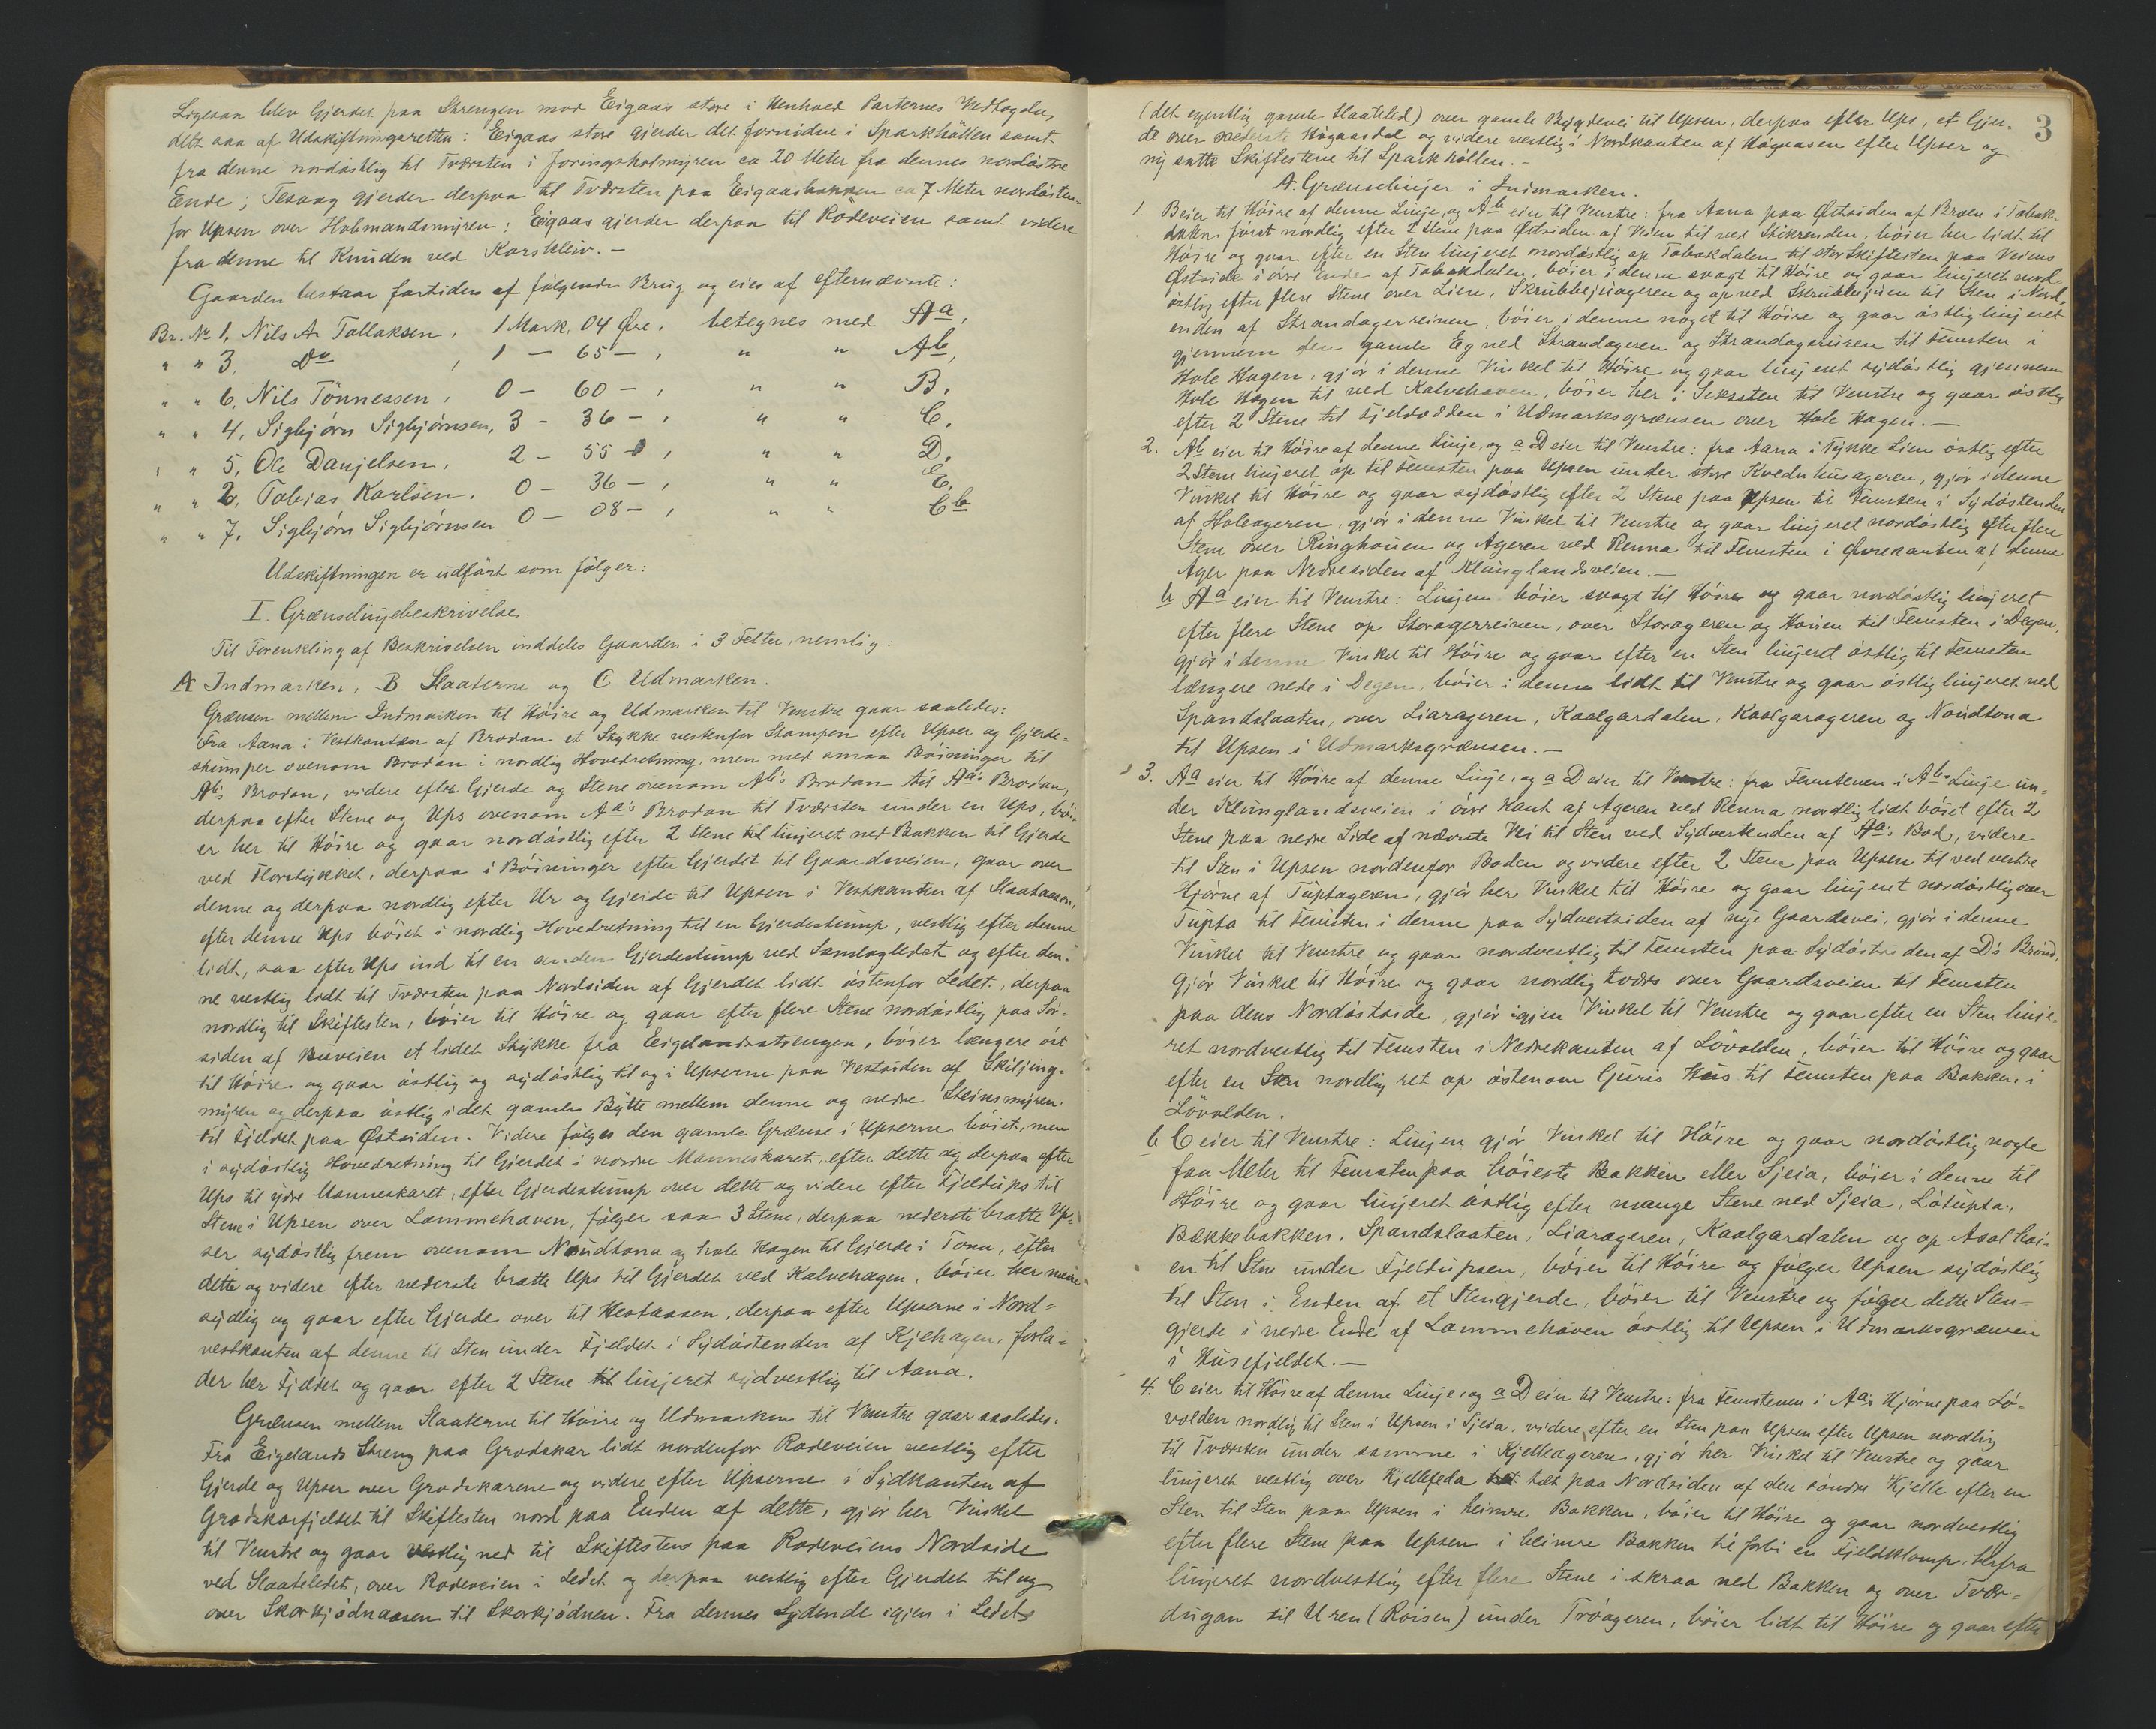 Ligesaa blev Gjerdet paa Strengen mod Eigaas store i Henhold Parternes Vedtagelse
delt saa af Udskiftningsretten: Eigaas store gjerder det fornødne i Sparkhällen samt
fra denne nordøstlig til Tværsten i Joringsholmyren ca 20 Meter fra dennes nordøstre
Ende; Tesaag gjerder derpaa til Tværsten paa Eigaasbakken ca 7 Meter nordøsten-
for Upsen over Holmandsmyren; Eigaas gjerder derpaa til Rodeveien samt videre
fra denne til Knuden ved Karskleiv. -
Gaarden bestaar fortiden af følgende Brug og eies af efternævnte:
Br. No 1, Nils A Tallaksen, 1 Mark, 04 Øre, betegnes med Aa,
" " 3, Do , 1 - 65 - , " " Ab,
" " 6, Nils Tönnessen, 0 - 60 - , " " B.
" " 4, Sigbjørn Sigbjørnsen, 3 - 36 - , " " C.
" " 5, Ole Danjelsen, 2 - 55 - , " " D.
" " 2, Tobias Karlsen, 0 - 36 - , " " E.
" " 7, Sigbjørn Sigbjørnsen 0 - 08 - , " " Cb
Udskiftningen er udført som følger:
I. Grænselinjebeskrivelse.
Til Forenkling af Beskrivelsen inddeles Gaarden i 3 Felter, nemlig:
A Indmarken, B. Slaaterne og C Udmarken.
Grænsen mellem Indmarken til Høire og Udmarken til Venstre gaar saaledes:
Fra Aana i Vestkanten af Brodan et Stykke vestenfor Stampen efter Upser og Gjerde-
stumper ovenom Brodan i nordlig Hovedretning, men med smaa Böininger til
Ab's Brodan, videre efter Gjerde og Stene ovenom Ab's Brodan til Aa's Brodan,
derpaa efter Stene og Ups ovenom Aa's Brodan til Tværsten under en Ups, böi-
er her til Høire og gaar nordøstlig efter 2 Stene linjeret ned Bakken til Gjerde
ved Florstykket, derpaa i Böininger efter Gjerdet til Gaardsveien, gaar over
denne og derpaa nordlig efter Ur og Gjerde til Upsen i Vestkanten af Slaataasen,
efter denne Ups böiet i nordlig Hovedretning til en Gjerdestump, vestlig efter denne
lidt, saa efter Ups ind til en anden Gjerdestump ved Samlagledet og efter den-
ne vestlig lidt til Tværsten paa Nordsiden af Gjerdet lidt østenfor Ledet, derpaa
nordlig til Skiftesten, böier til Høire og gaar efter flere Stene nordøstlig paa Sör-
siden af Buveien et lidet Stykke fra Eigelandsstrengen, böier længere öst
til Høire og gaar østlig og sydøstlig til og i Upserne paa Vestsiden af Skiljing-
myren og derpaa østlig i det gamle Bytte mellem denne og nedre Steinsmyren
til Fjeldet paa Østsiden. Videre følges den gamle Grænse i Upserne böiet, men
i sydøstlig Hovedretning til Gjerdet i nordre Manneskaret, efter dette og derpaa efter
Ups til ydre Manneskaret, efter Gjerdestump over dette og videre efter Fjeldups til
Stene i Upsen over Lammehaven, følger saa 3 Stene, derpaa nederste bratte Up-
ser sydøstlig frem ovenom Noudtona og hole Hagen til Gjerde i Tona, efter
dette og videre efter nederste bratte Ups til Gjerdet ved Kalvehagen, böier her mere
sydlig og gaar efter Gjerde over til Hestaasen, derpaa efter Upserne i Nord-
vestkanten af denne til Sten under Fjeldet i Sydøstenden af Kjehagen, forla-
der her Fjeldet og gaar efter 2 Stene linjeret sydvestlig til Aana.
Grænsen mellem Slaaterne til Høire og Udmarken til Venstre gaar saaledes:
Fra Eigelands Streng paa Grodskar lidt nordenfor Rodeveien vestlig efter
Gjerde og Upser over Grodskarene og videre efter Upserne i Sydkanten af
Grodskarfjeldet til Skiftesten nord paa Enden af dette, gjør her Vinkel
til Venstre og gaar vestlig ned til Skiftestens paa Rodeveiens Nordside
ved Slaateledet, over Rodeveien i Ledet og derpaa vestlig efter Gjerdet til og
over Skorkjödnaasen til Skorkjödnen. Fra dennes Sydende igjen i Ledet
3
(det egentlig gamle Slaateled) over gamle Bygdevei til Upsen, derpaa efter Ups, et Gjer-
de over nederste Högaasdal og videre vestlig i Nordkanten af Högaasen efter Upser og
ny satte Skiftestene til Sparkhällen. -
A. Grænselinjer i Indmarken.
1. B eier til Høire af denne Linje, og Ab eier til Venstre: fra Aana paa Østsiden af Broen i Tobak-
dalen først nordlig efter 2 Stene paa Østsiden af Veien til ved Stikrenden, böier her lidt til
Høire og gaar efter en Sten linjeret nordøstlig op Tobakdalen til stor Skiftesten paa Veiens
Østside i övre Ende af Tobakdalen, böier i denne svagt til Høire og gaar linjeret nord-
østlig efter flere Stene over Lien, Skrubbejuageren og op ved Skrubbejuen til Sten i Nord-
enden af Strandagerreinen, böier i denne noget til Høire og gaar østlig linjeret
gjennem den gamle Eg ned Strandageren og Strandageruren til Femsten i
Hole Hagen, gjør i denne Vinkel til Høire og gaar linjeret sydøstlig gjennem
Hole Hagen til ved Kalvehaven, böier her i Seksten til Venstre og gaar østlig
efter 2 Stene til Fjeldodden i Udmarksgrænsen over Hole Hagen. -
2. Ab eier til Høire af denne Linje, og a D eier til Venstre: fra Aana i Tykke Lien østlig efter
2 Stene linjeret op til Femsten paa Upsen under store Kvednhusageren, gjør i denne
Vinkel til Høire og gaar sydøstlig efter 2 Stene paa Upsen til Femsten i Sydøstenden
af Holeageren, gjør i denne Vinkel til Venstre og gaar linjeret nordøstlig efter flere
Stene over Ringhouen og Ageren ved Renna til Femsten i Øvrekanten af denne
Ager paa Nedresiden af Klunglandsveien. -
b Aa eier til Venstre: Linjen böier svagt til Høire og gaar nordøstlig linjeret
efter flere Stene op Storagerreinen, over Storageren og Houen til Femsten i Degen,
gjør i denne Vinkel til Høire og gaar efter en Sten linjeret østlig til Femsten
længere nede i Degen, böier i denne lidt til Venstre og gaar østlig linjeret ned
Spandslaaten, over Liarageren, Kaalgardalen, Kaalgarageren og Noudtona
til Upsen i Udmarksgrænsen. -
3. Aa eier til Høire af denne Linje, og a D eier til Venstre: fra Femstenen i Ab's Linje un-
der Klunglandsveien i övre Kant af Ageren ved Renna, nordlig lidt böiet efter 2
Stene paa nedre Side af nævnte Vei til Sten ved Sydvestenden af Aa's Bod, videre
til Sten i Upsen nordenfor Boden og videre efter 2 Stene paa Upsen til ved vestre
Hjörne af Tuptageren, gjør her Vinkel til Høire og gaar linjeret nordøstlig over
Tupta til Femsten i denne paa Sydvestsiden af nye Gaardsvei, gjør i denne
Vinkel til Venstre og gaar nordvestlig til Femsten paa Sydøstsiden af D's Brönd,
gjör Vinkel til Høire og gaar nordlig tværs over Gaardsveien til Femsten
paa dens Nordøstside, gjør igjen Vinkel til Venstre og gaar efter en Sten linje-
ret nordvestlig til Femsten i Nedrekanten af Lövolden, böier til Høire og gaar
efter en Sten nordlig ret op østenom Guris Hus til Femsten paa Bakken i
Lövolden.
b C eier til Venstre: Linjen gjør Vinkel til Høire og gaar nordøstlig nogle
faa Meter til Femsten paa høieste Bakken eller Sjeia, böier i denne til
Høire og gaar linjeret østlig efter mange Stene ned Sjeia, Lötupta,
Bækkebakken, Spandslaaten, Liarageren, Kaalgardalen og op Asalhei-
en til Sten under Fjeldupsen, böier til Høire og følger Upsen sydøstlig
til Sten i Enden af et Stengjerde, böier til Venstre og følger dette Sten-
gjerde i nedre Ende af Lammehaven østlig til Upsen i Udmarksgrænsen
i Husefjeldet. -
4. C eier til Høire af denne Linje, og a D eier til Venstre: fra Femstenen i Aa's Hjørne paa Lö-
volden nordlig til Sten i Upsen i Sjeia, videre efter en Sten paa Upsen efter Upsen nordlig
til Tværsten under samme i Kjelleageren, gjør her Vinkel til Venstre og gaar
linjeret vestlig over Kjellefeda tæt paa Nordsiden af den söndre Kjelle efter en
Sten til Sten paa Upsen i heimre Bakken, böier til Høire og gaar nordvestlig
efter flere Stene paa Upsen i heimre Bakken til forbi en Fjeldklomp, herfra
linjeret nordvestlig efter flere Stene i skraa ned Bakken og over Tvær-
dugan til Uren (Roisen) under Tröageren, böier lidt til Høire og gaar efter